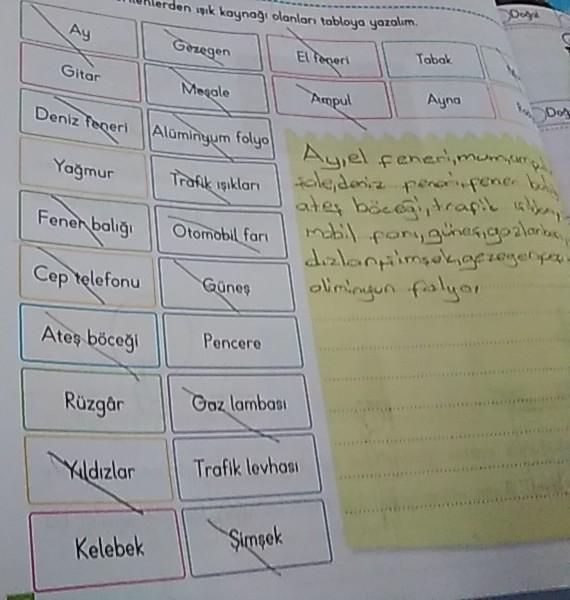 ışık kaynağı olanları tabloya yazalım.
Ay
Gezegen
El feneri
Tabak
Gitar
Meşale
Ampul
Ayna
Deniz feneri
Alüminyum folyo
Yağmur
Trafik ışıkları
Fener balığı
Otomobil farı
Cep telefonu
Güneş
Ateş böceği
Pencere
Rüzgâr
Gaz lambası
Yıldızlar
Trafik levhası
Kelebek
Şimşek
Ay, el feneri, mum,
deniz feneri, fener
ateş böceği, trafik
mobil farı, güneş,
oliminyun folyo,
Doğal